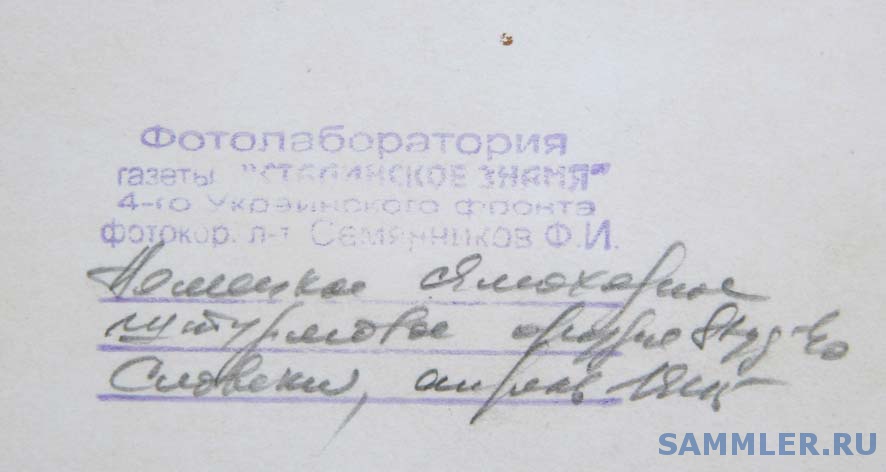 Фотолаборатория
газеты "СТАЛИНСКОЕ ЗНАМЯ"
4-го Украинского фронта
фотокор. л-т Семянников Ф.И.
Немецкое самоходное
штурмовое орудие
Словакия, апрель
SAMMLER.RU